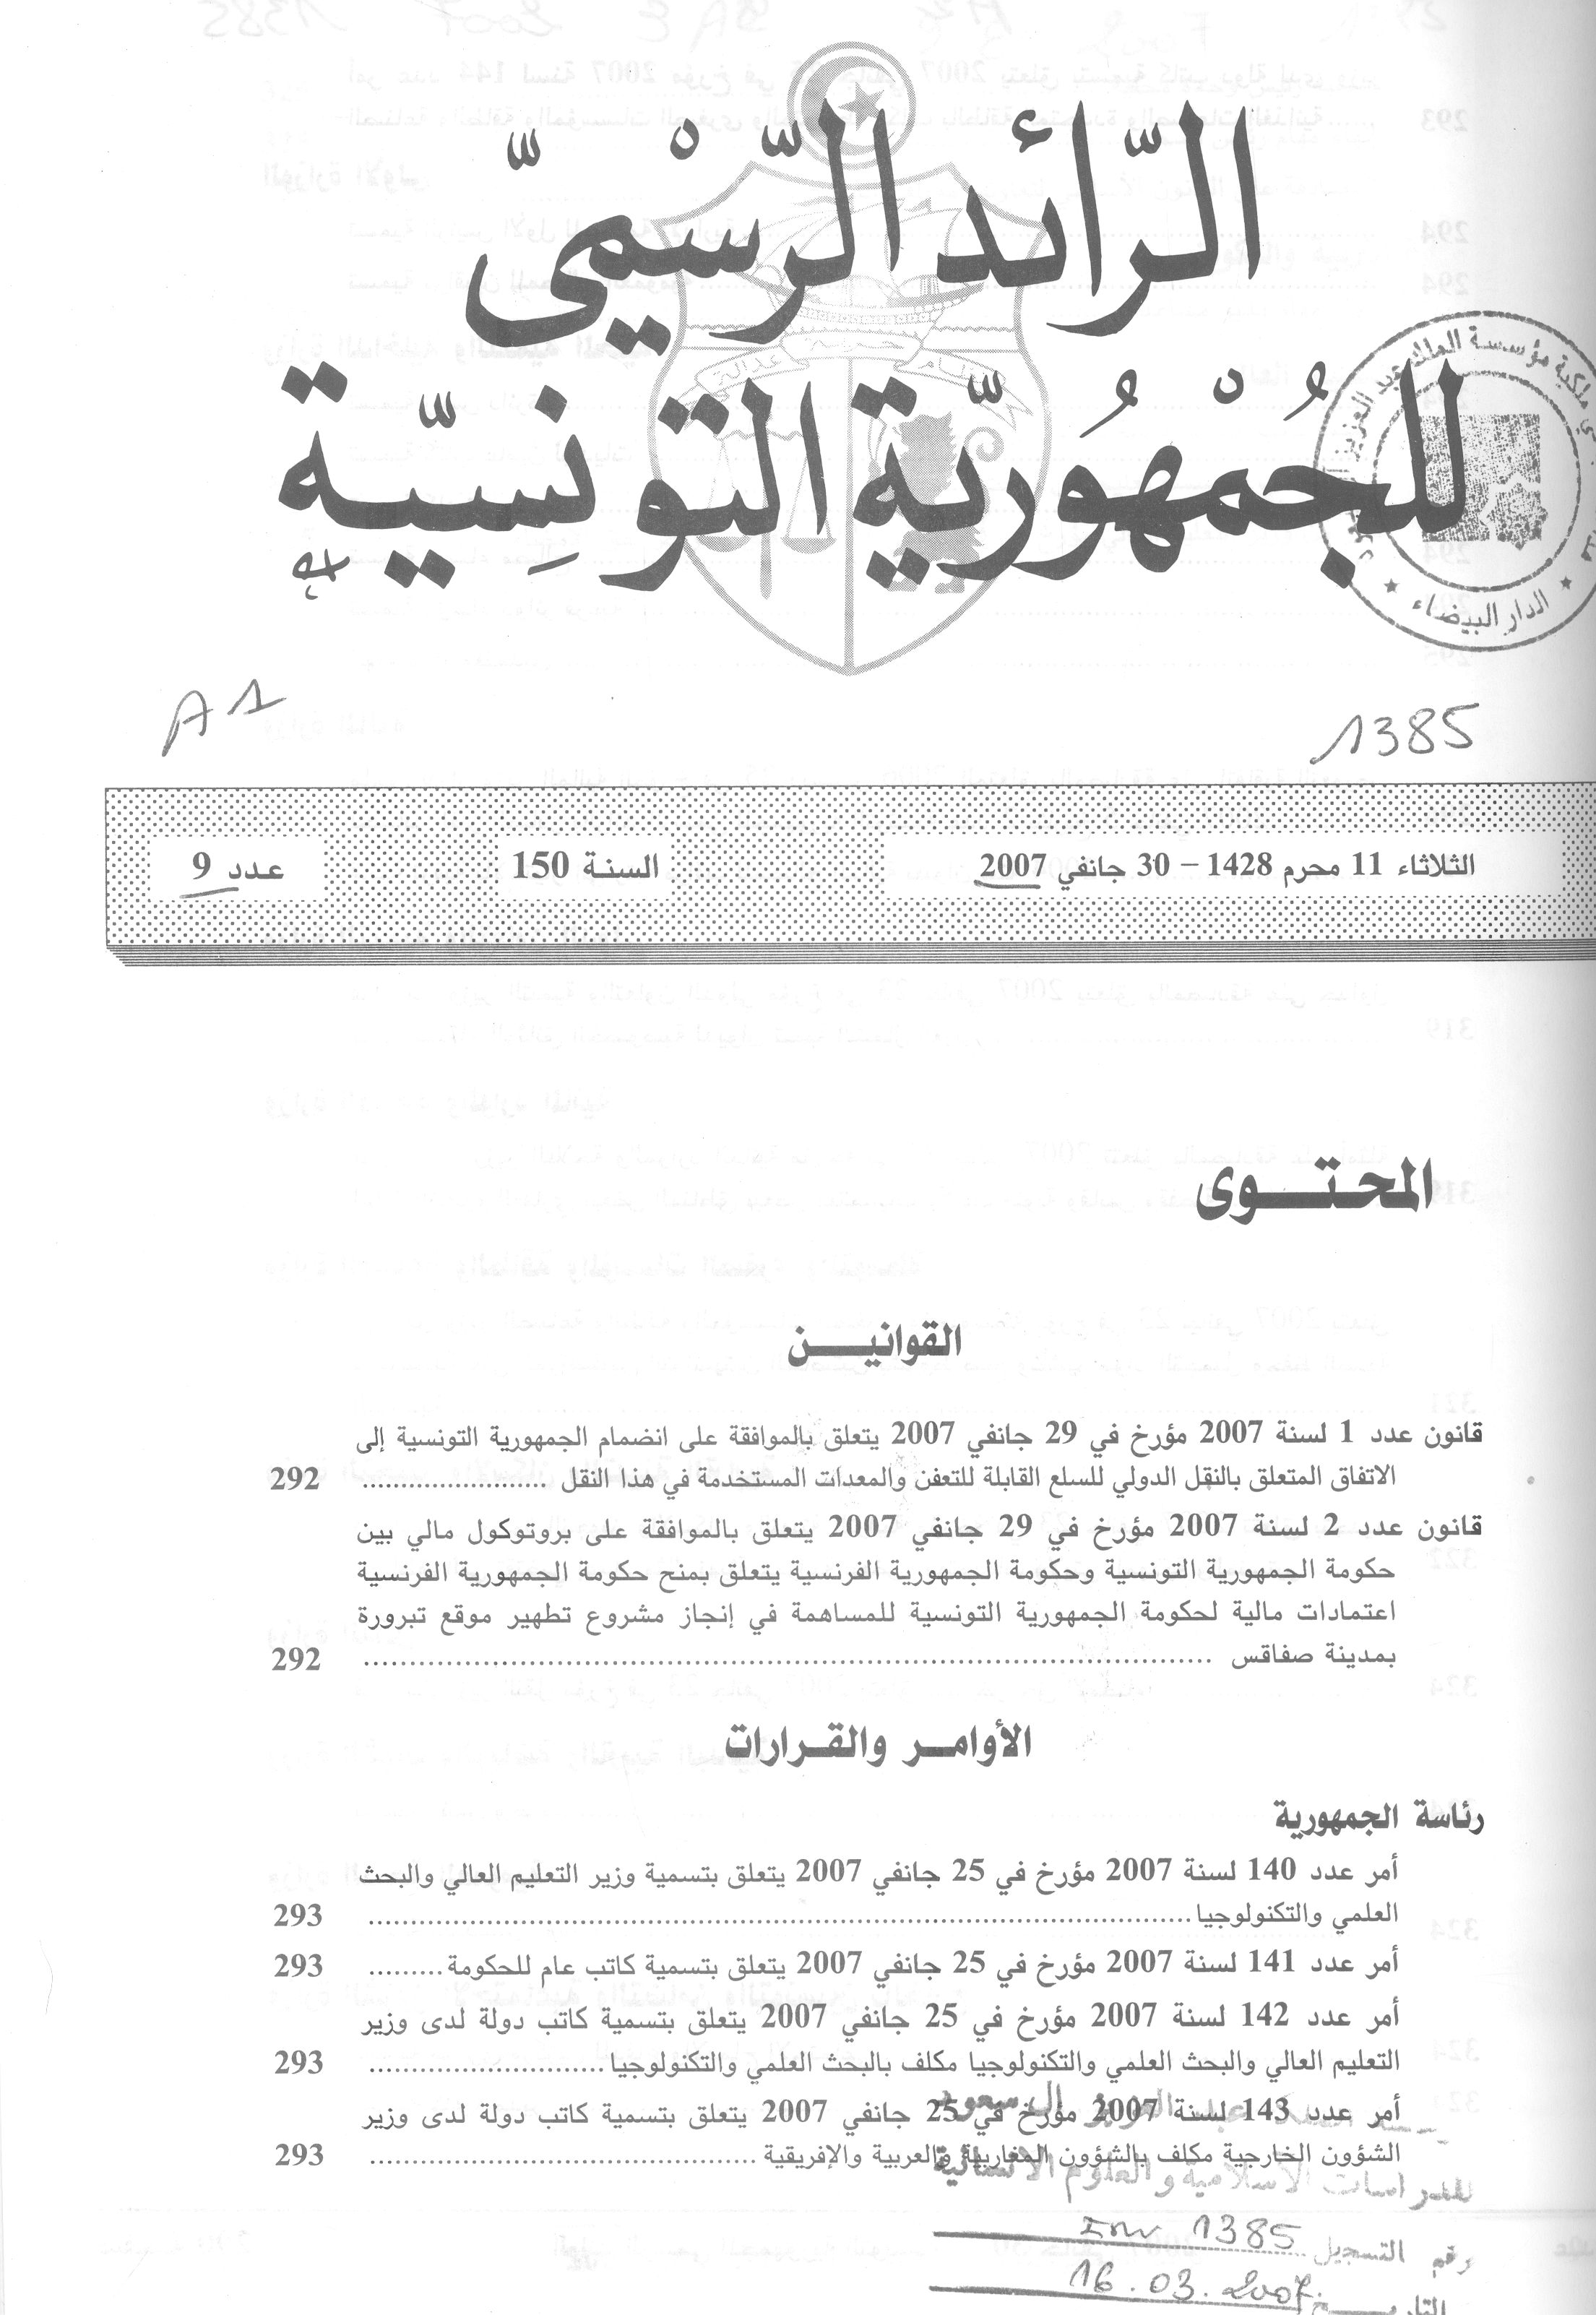 الرّائد الرّسْميّ
للجُمْهُوريّة التّونِسيّة
A1
1385
الثلاثاء 11 محرم 1428 – 30 جانفي 2007
السنة 150
عدد 9
الدار البيضاء
المحتوى
القوانين
قانون عدد 1 لسنة 2007 مؤرخ في 29 جانفي 2007 يتعلق بالموافقة على انضمام الجمهورية التونسية إلى
الاتفاق المتعلق بالنقل الدولي للسلع القابلة للتعفن والمعدات المستخدمة في هذا النقل ...................... 292
قانون عدد 2 لسنة 2007 مؤرخ في 29 جانفي 2007 يتعلق بالموافقة على بروتوكول مالي بين
حكومة الجمهورية التونسية وحكومة الجمهورية الفرنسية يتعلق بمنح حكومة الجمهورية الفرنسية
اعتمادات مالية لحكومة الجمهورية التونسية للمساهمة في إنجاز مشروع تطهير موقع تبرورة
بمدينة صفاقس ...................... 292
الأوامر والقرارات
رئاسة الجمهورية
أمر عدد 140 لسنة 2007 مؤرخ في 25 جانفي 2007 يتعلق بتسمية وزير التعليم العالي والبحث
العلمي والتكنولوجيا ...................... 293
أمر عدد 141 لسنة 2007 مؤرخ في 25 جانفي 2007 يتعلق بتسمية كاتب عام للحكومة ......... 293
أمر عدد 142 لسنة 2007 مؤرخ في 25 جانفي 2007 يتعلق بتسمية كاتب دولة لدى وزير
التعليم العالي والبحث العلمي والتكنولوجيا مكلف بالبحث العلمي والتكنولوجيا ...................... 293
أمر عدد 143 لسنة 2007 مؤرخ في 25 جانفي 2007 يتعلق بتسمية كاتب دولة لدى وزير
الشؤون الخارجية مكلف بالشؤون المغاربية والعربية والإفريقية ...................... 293
عبد العزيز آل سعود
للدراسات الاسلامية والعلوم الانسانية
رقم التسجيل Inv 1385
التاريخ 16.03.2007